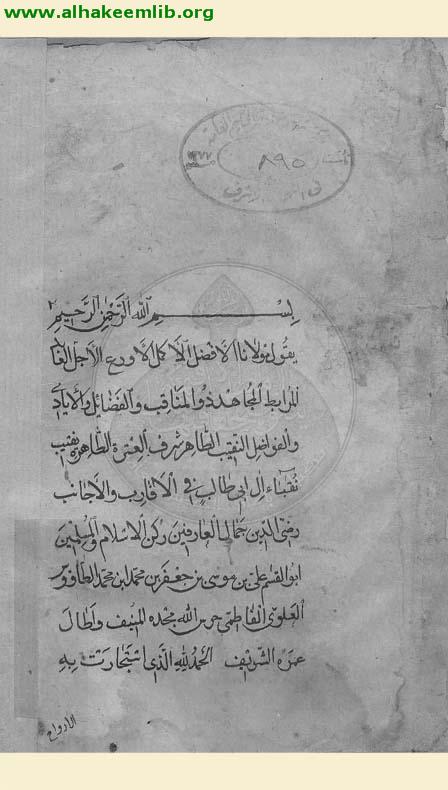 www.alhakeemlib.org
٨٩٥
بســـم الله الرحمن الرحيم
يقول مولانا الافضل الاكمل الاورع الاجل العالم
المرابط المجاهد ذو المناقب والفضائل والايادي
والفواضل النقيب الطاهر شرف العترة الطاهرة نقيب
نقباء ال ابي طالب في الاقارب والاجانب
رضي الدين جمال العارفين ركن الاسلام والمسلمين
ابو القسم علي بن موسى بن جعفر بن محمد بن محمد الطاووس
العلوي الفاطمي حرس الله مجده المنيف واطال
عمره الشريف الحمد لله الذي استجارت به
الارواح